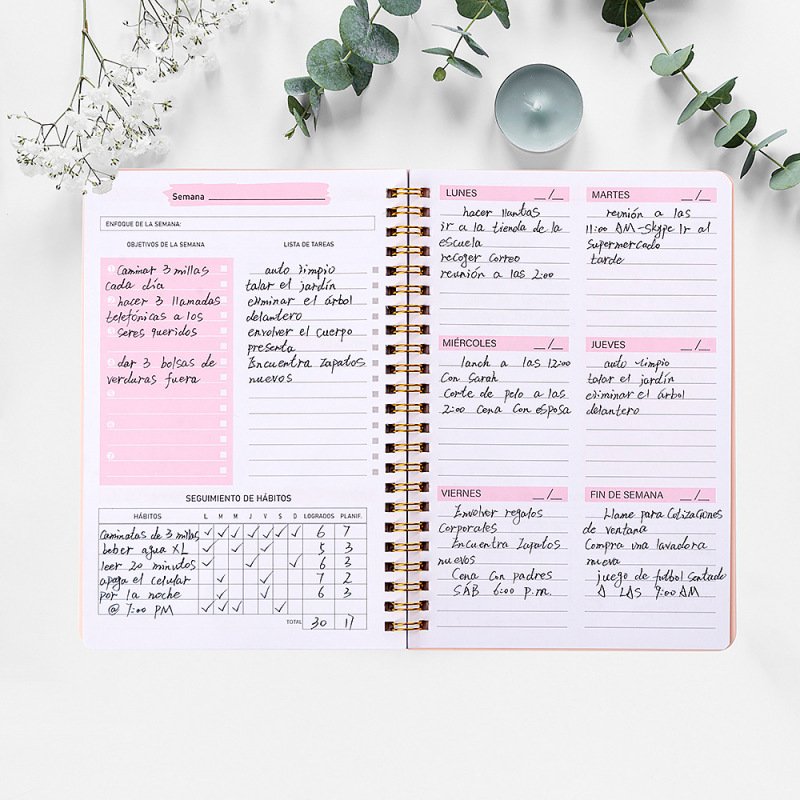 Semana
ENFOQUE DE LA SEMANA:
OBJETIVOS DE LA SEMANA
caminar 3 millas
cada día
hacer 3 llamadas
telefónicas a los
seres queridos
dar 3 bolsas de
verduras fuera
LISTA DE TAREAS
auto limpio
talar el jardín
eliminar el árbol
delantero
envolver el cuerpo
presenta
Encuentra zapatos
nuevos
SEGUIMIENTO DE HÁBITOS
HÁBITOS L M M J V S D LOGRADOS PLANIF.
Caminatas de 3 millas ✓ ✓ ✓ ✓ ✓ ✓ ✓ 6 7
beber agua XL 5 3
leer 20 minutos 6 3
apaga el celular 7 2
por la noche 6 3
@ 7:00 PM
TOTAL 30 17
LUNES __/__
hacer llantas
ir a la tienda de la
escuela
recoger correo
reunión a las 2:00
MARTES __/__
reunión a las
11:00 AM-Skype Ir al
supermercado
tarde
MIÉRCOLES __/__
lanch a las 12:00
Con Sarah
Corte de pelo a las
2:00 Cena Con esposa
JUEVES __/__
auto limpio
talar el jardín
eliminar el árbol
delantero
VIERNES __/__
Envolver regalos
Corporales
Encuentra Zapatos
nuevos
Cena con padres
SÁB 6:00 p.m.
FIN DE SEMANA __/__
Llame para Cotizaciones
de ventana
Compra una lavadora
nueva
juego de futbol sentado
A LAS 9:00 AM